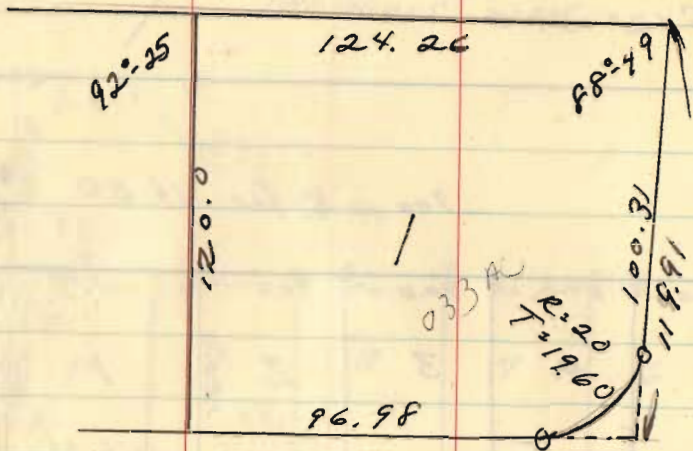 124.26
92°-25
88°-49
120.0
1
033 AC
100.31
119.91
R=20
T=19.60
96.98